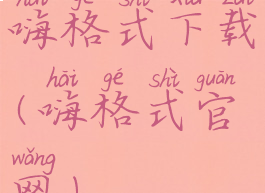 hāi gé shì xià zǎi
嗨格式下载
hāi gé shì guān
(嗨格式官
wǎng
网)